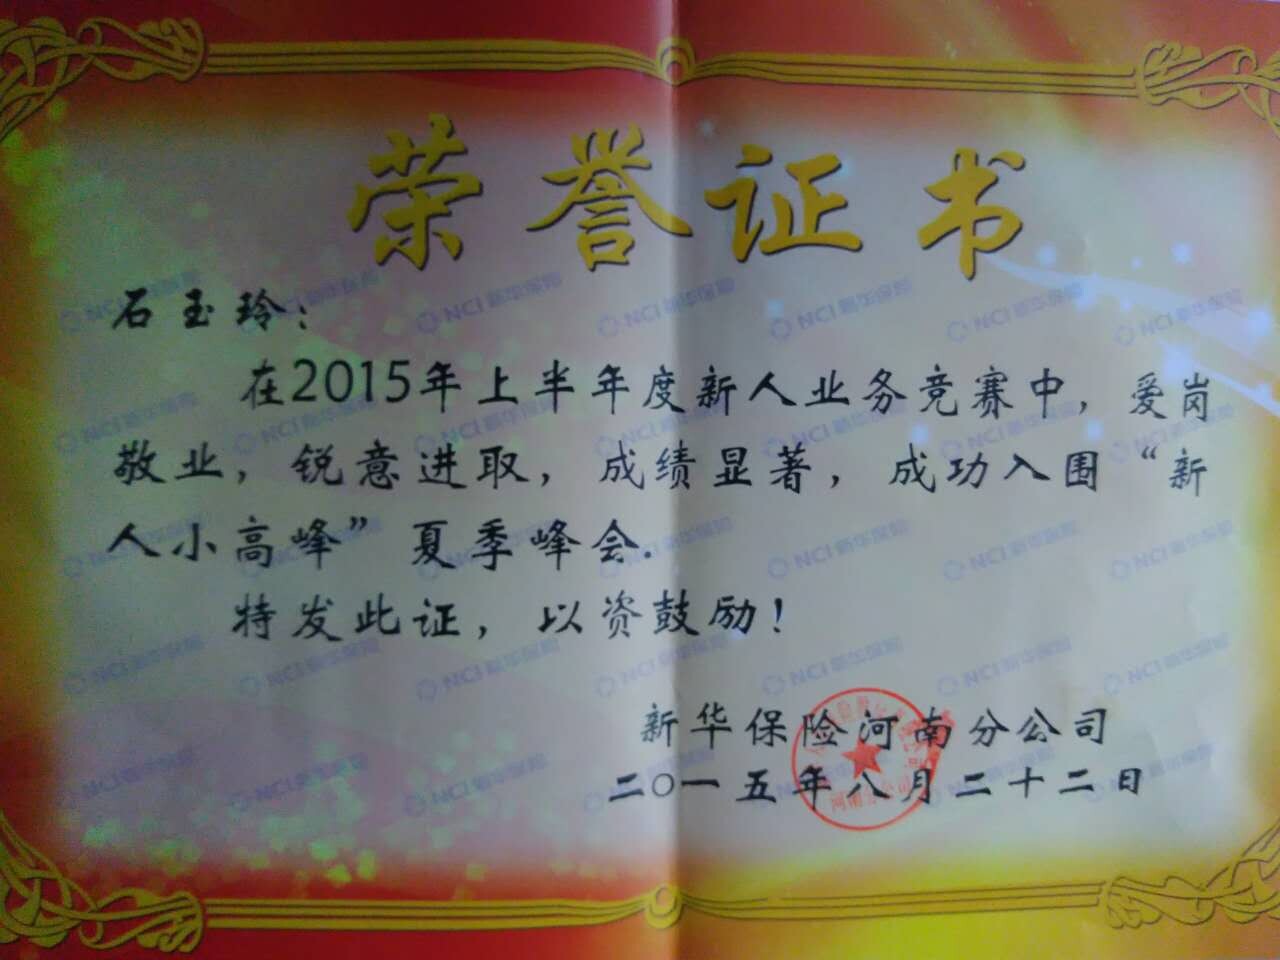 荣誉证书
石玉玲：
在2015年上半年度新人业务竞赛中，爱岗
敬业，锐意进取，成绩显著，成功入围“新
人小高峰”夏季峰会.
特发此证，以资鼓励！
新华保险河南分公司
二〇一五年八月二十二日
NCI 新华保险